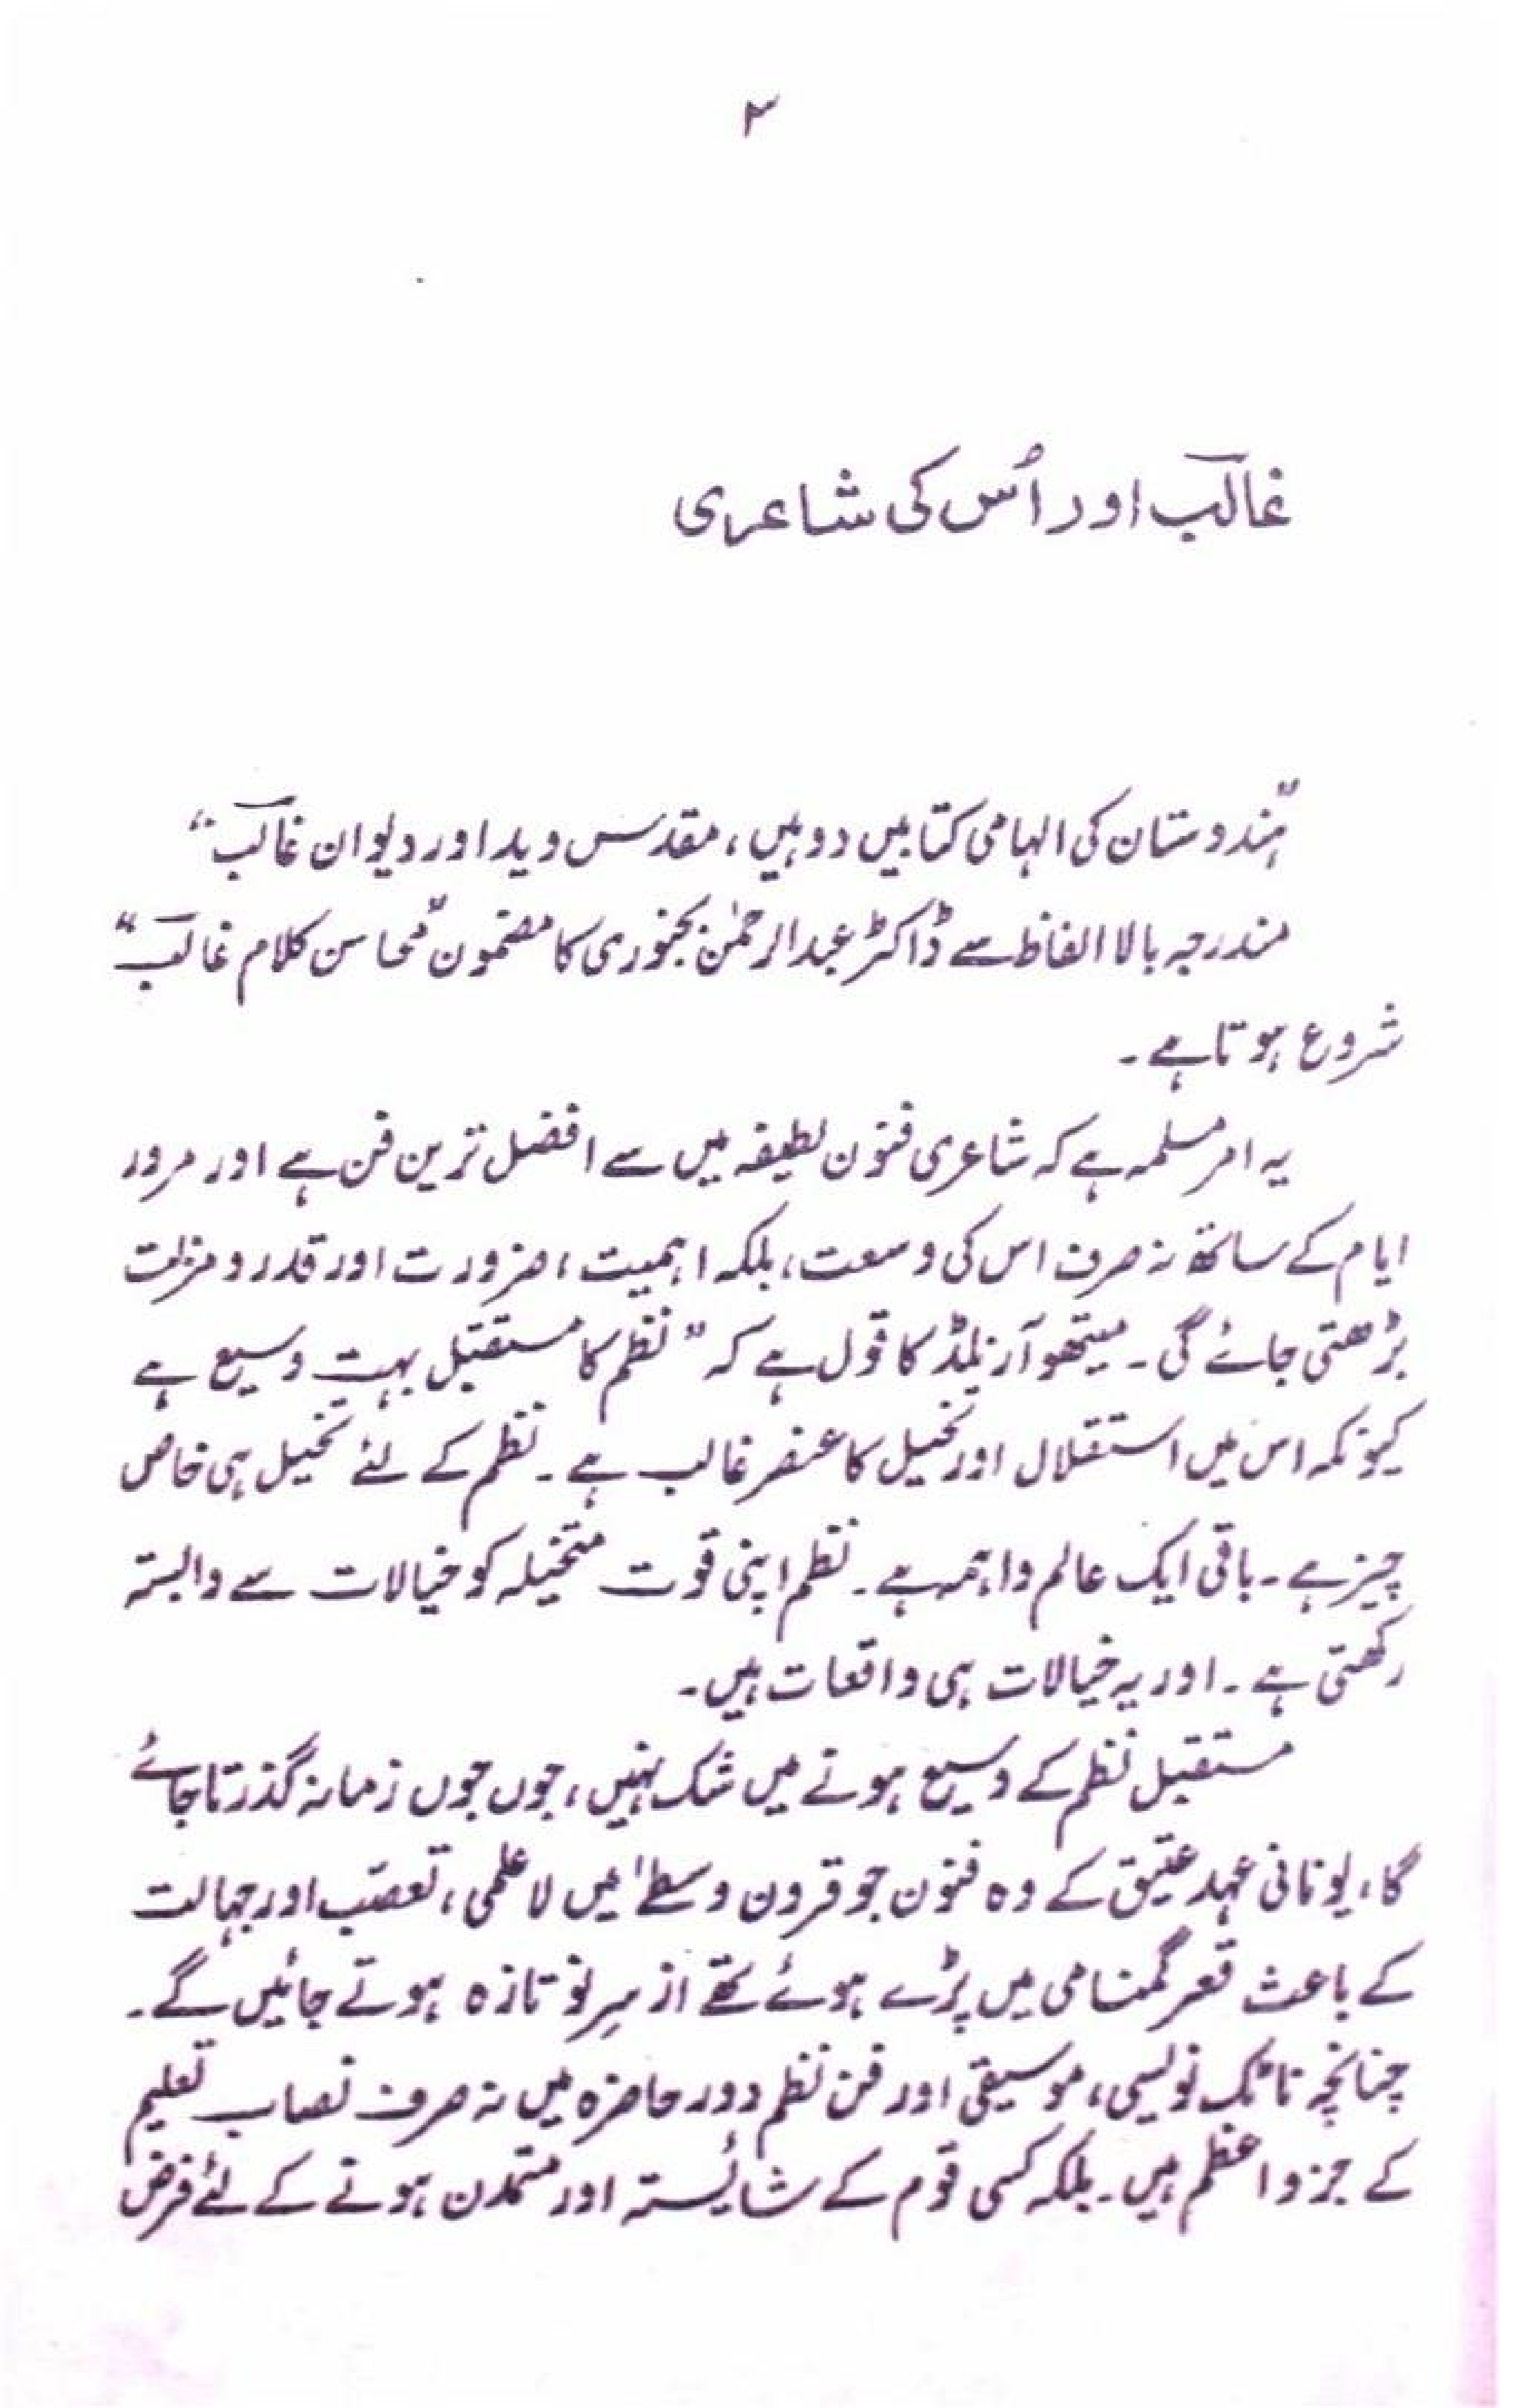 ۳
غالبؔ اور اُس کی شاعری
”ہندوستان کی الہامی کتابیں دو ہیں، مقدس وید اور دیوان غالبؔ“
مندرجہ بالا الفاظ سے ڈاکٹر عبدالرحمٰن بجنوری کا مضمون ”محاسن کلام غالبؔ“
شروع ہوتا ہے۔
یہ امر مسلمہ ہے کہ شاعری فنون لطیفہ میں سے افضل ترین فن ہے اور مرور
ایام کے ساتھ نہ صرف اس کی وسعت، بلکہ اہمیت، ضرورت اور قدر و منزلت
بڑھتی جائے گی۔ میتھو آرنلڈ کا قول ہے کہ ”نظم کا مستقبل بہت وسیع ہے
کیونکہ اس میں استقلال اور تخیل کا عنصر غالب ہے۔ نظم کے لئے تخیل ہی خاص
چیز ہے۔ باقی ایک عالم واہمہ ہے۔ نظم اپنی قوت متخیلہ کو خیالات سے وابستہ
رکھتی ہے۔ اور یہ خیالات ہی واقعات ہیں۔
مستقبل نظم کے وسیع ہونے میں شک نہیں، جوں جوں زمانہ گذرتا جائے
گا، یونانی عہد عتیق کے وہ فنون جو قرون وسطےٰ میں لاعلمی، تعصّب اور جہالت
کے باعث قعر گمنامی میں پڑے ہوئے تھے از سرِ نو تازہ ہوتے جائیں گے۔
چنانچہ ناٹک نویسی، موسیقی اور فن نظم دور حاضرہ میں نہ صرف نصاب تعلیم
کے جزو اعظم ہیں۔ بلکہ کسی قوم کے شائستہ اور متمدن ہونے کے لئے فرض